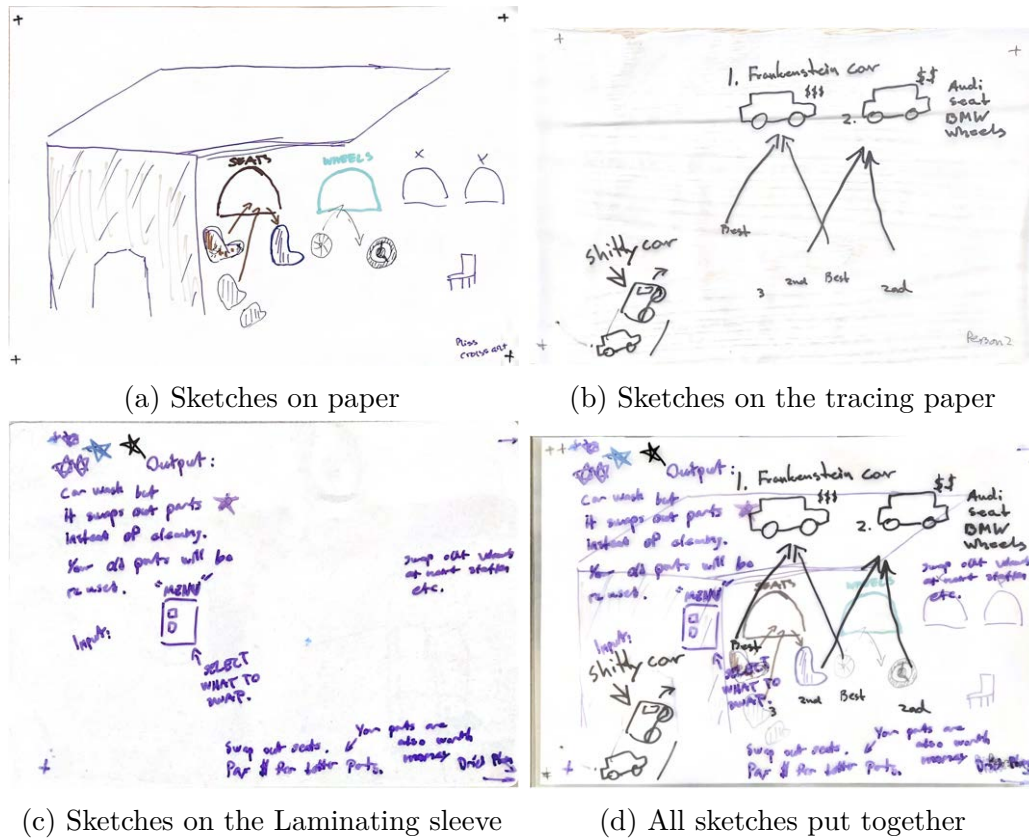 SEATS WHEELS X Y
Pliss
croissant
(a) Sketches on paper
1. Frankenstein car
$$$
$$
2.
Audi
seat
BMW
wheels
Best
shitty car
3 2nd Best 2nd
Person 2
(b) Sketches on the tracing paper
Output:
Car wash but
it swaps out parts
instead of cleaning.
Your old parts will be
reused.
"MENU"
Input:
SELECT
WHAT TO
SWAP.
swap out wheels
at next station
etc.
Swap out seats.
Pay $ for better parts.
Your parts are
also worth
money
(c) Sketches on the Laminating sleeve
Output:
1. Frankenstein car
$$$
$$
2.
Audi
seat
BMW
wheels
Car wash but
it swaps out parts
instead of cleaning.
Your old parts will be
reused.
"MENU"
SEATS WHEELS
swap out wheels
at next station
etc.
Input:
shitty car
Best
SELECT
WHAT TO
SWAP.
3 2nd Best 2nd
Swap out seats.
Pay $ for better parts.
Your parts are
also worth
money
(d) All sketches put together